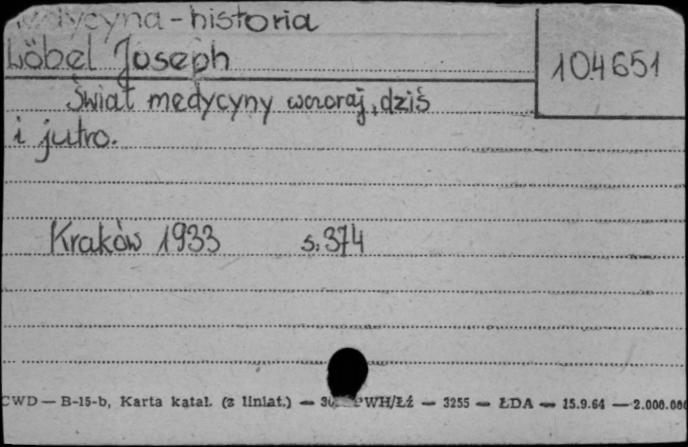 Medycyna - historia
Löbel Joseph
104651
Świat medycyny wczoraj, dziś
i jutro.
Kraków 1933 s. 374
CWD — B-15-b, Karta katal. (z liniat.) — PWH/Łź — 3255 — ŁDA — 15.9.64 — 2.000.000